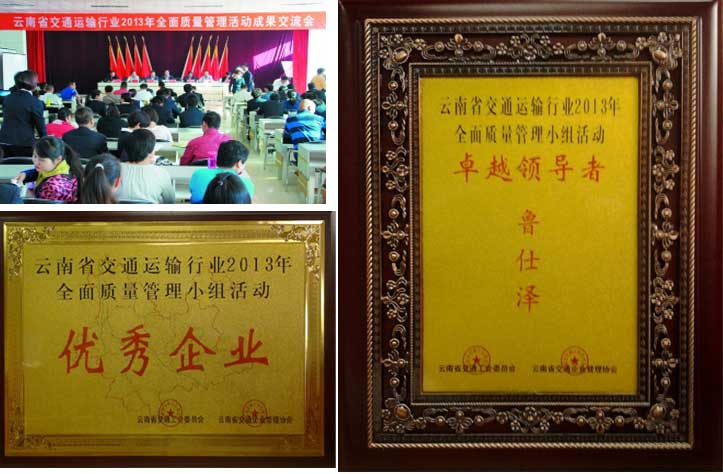 云南省交通运输行业2013年全面质量管理活动成果交流会
云南省交通运输行业2013年
全面质量管理小组活动
优秀企业
云南省交通工会委员会
云南省交通企业管理协会
云南省交通运输行业2013年
全面质量管理小组活动
卓越领导者
鲁仕泽
云南省交通工会委员会
云南省交通企业管理协会